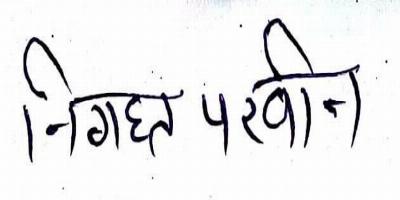 निगहत परवीन